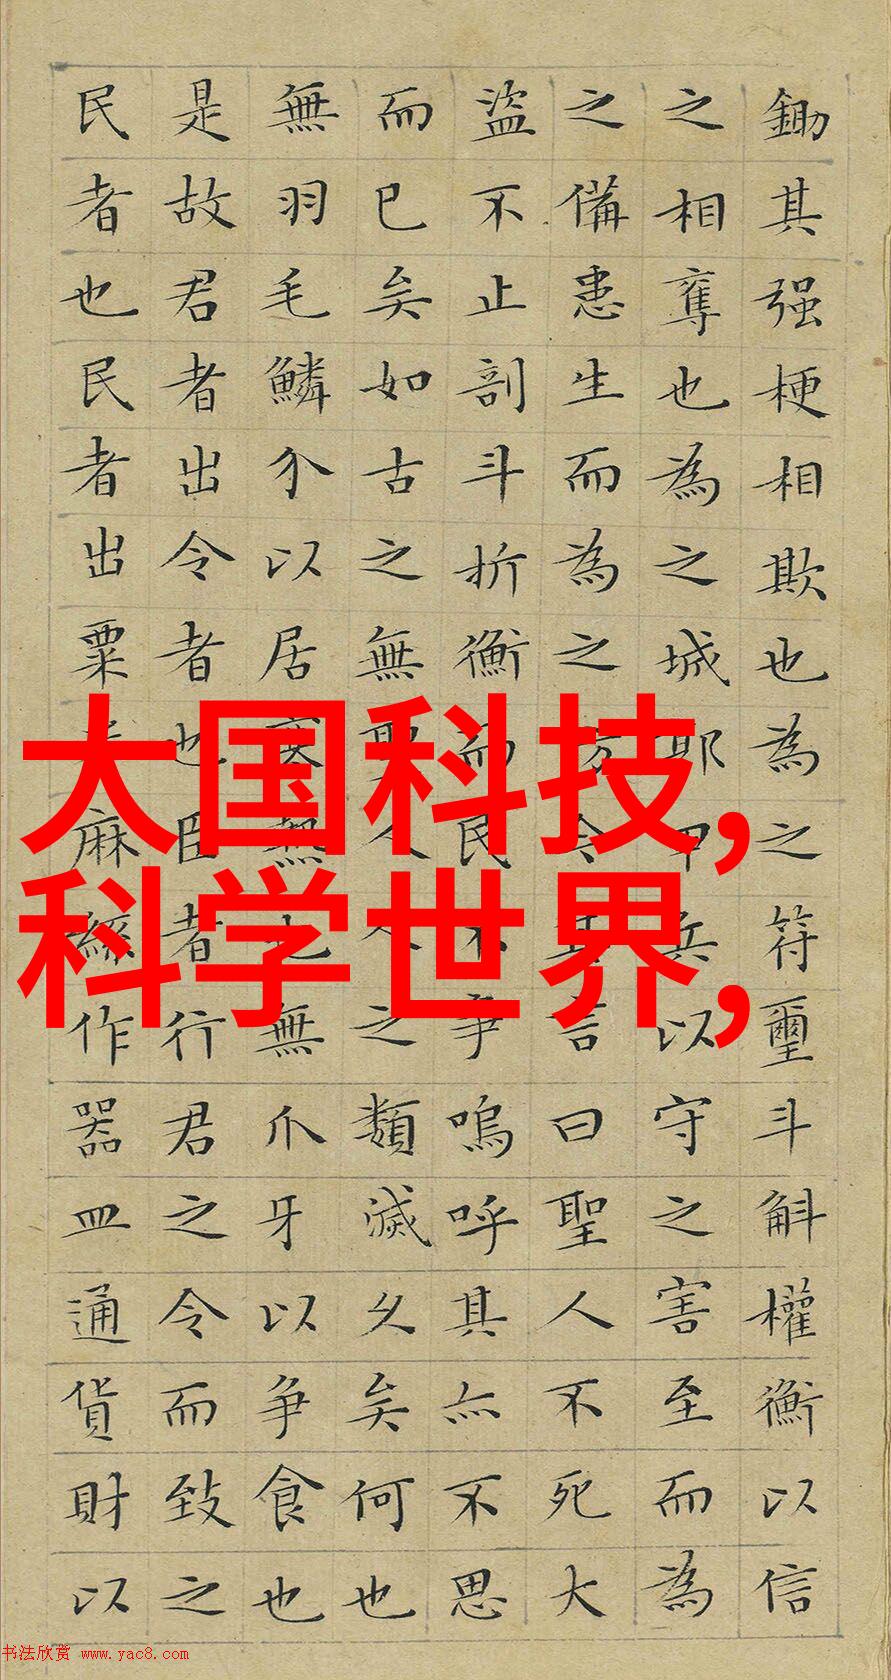 鋤其强梗相欺也為之符璽斗斛權衡以信
之相奪也為之城郭甲兵以守之害至而為
之備患生而為之防今其言曰聖人不死大
盜不止剖斗折衡而民不爭嗚呼其亦不思
而已矣如古之無聖人人之類滅久矣何也
無羽毛鱗介以居寒熱也無爪牙以爭食也
是故君者出令者也臣者行君之令而致之
民者也民者出粟米麻絲作器皿通貨財以
大国科技,
科学世界,
书法欣赏 www.yac8.com